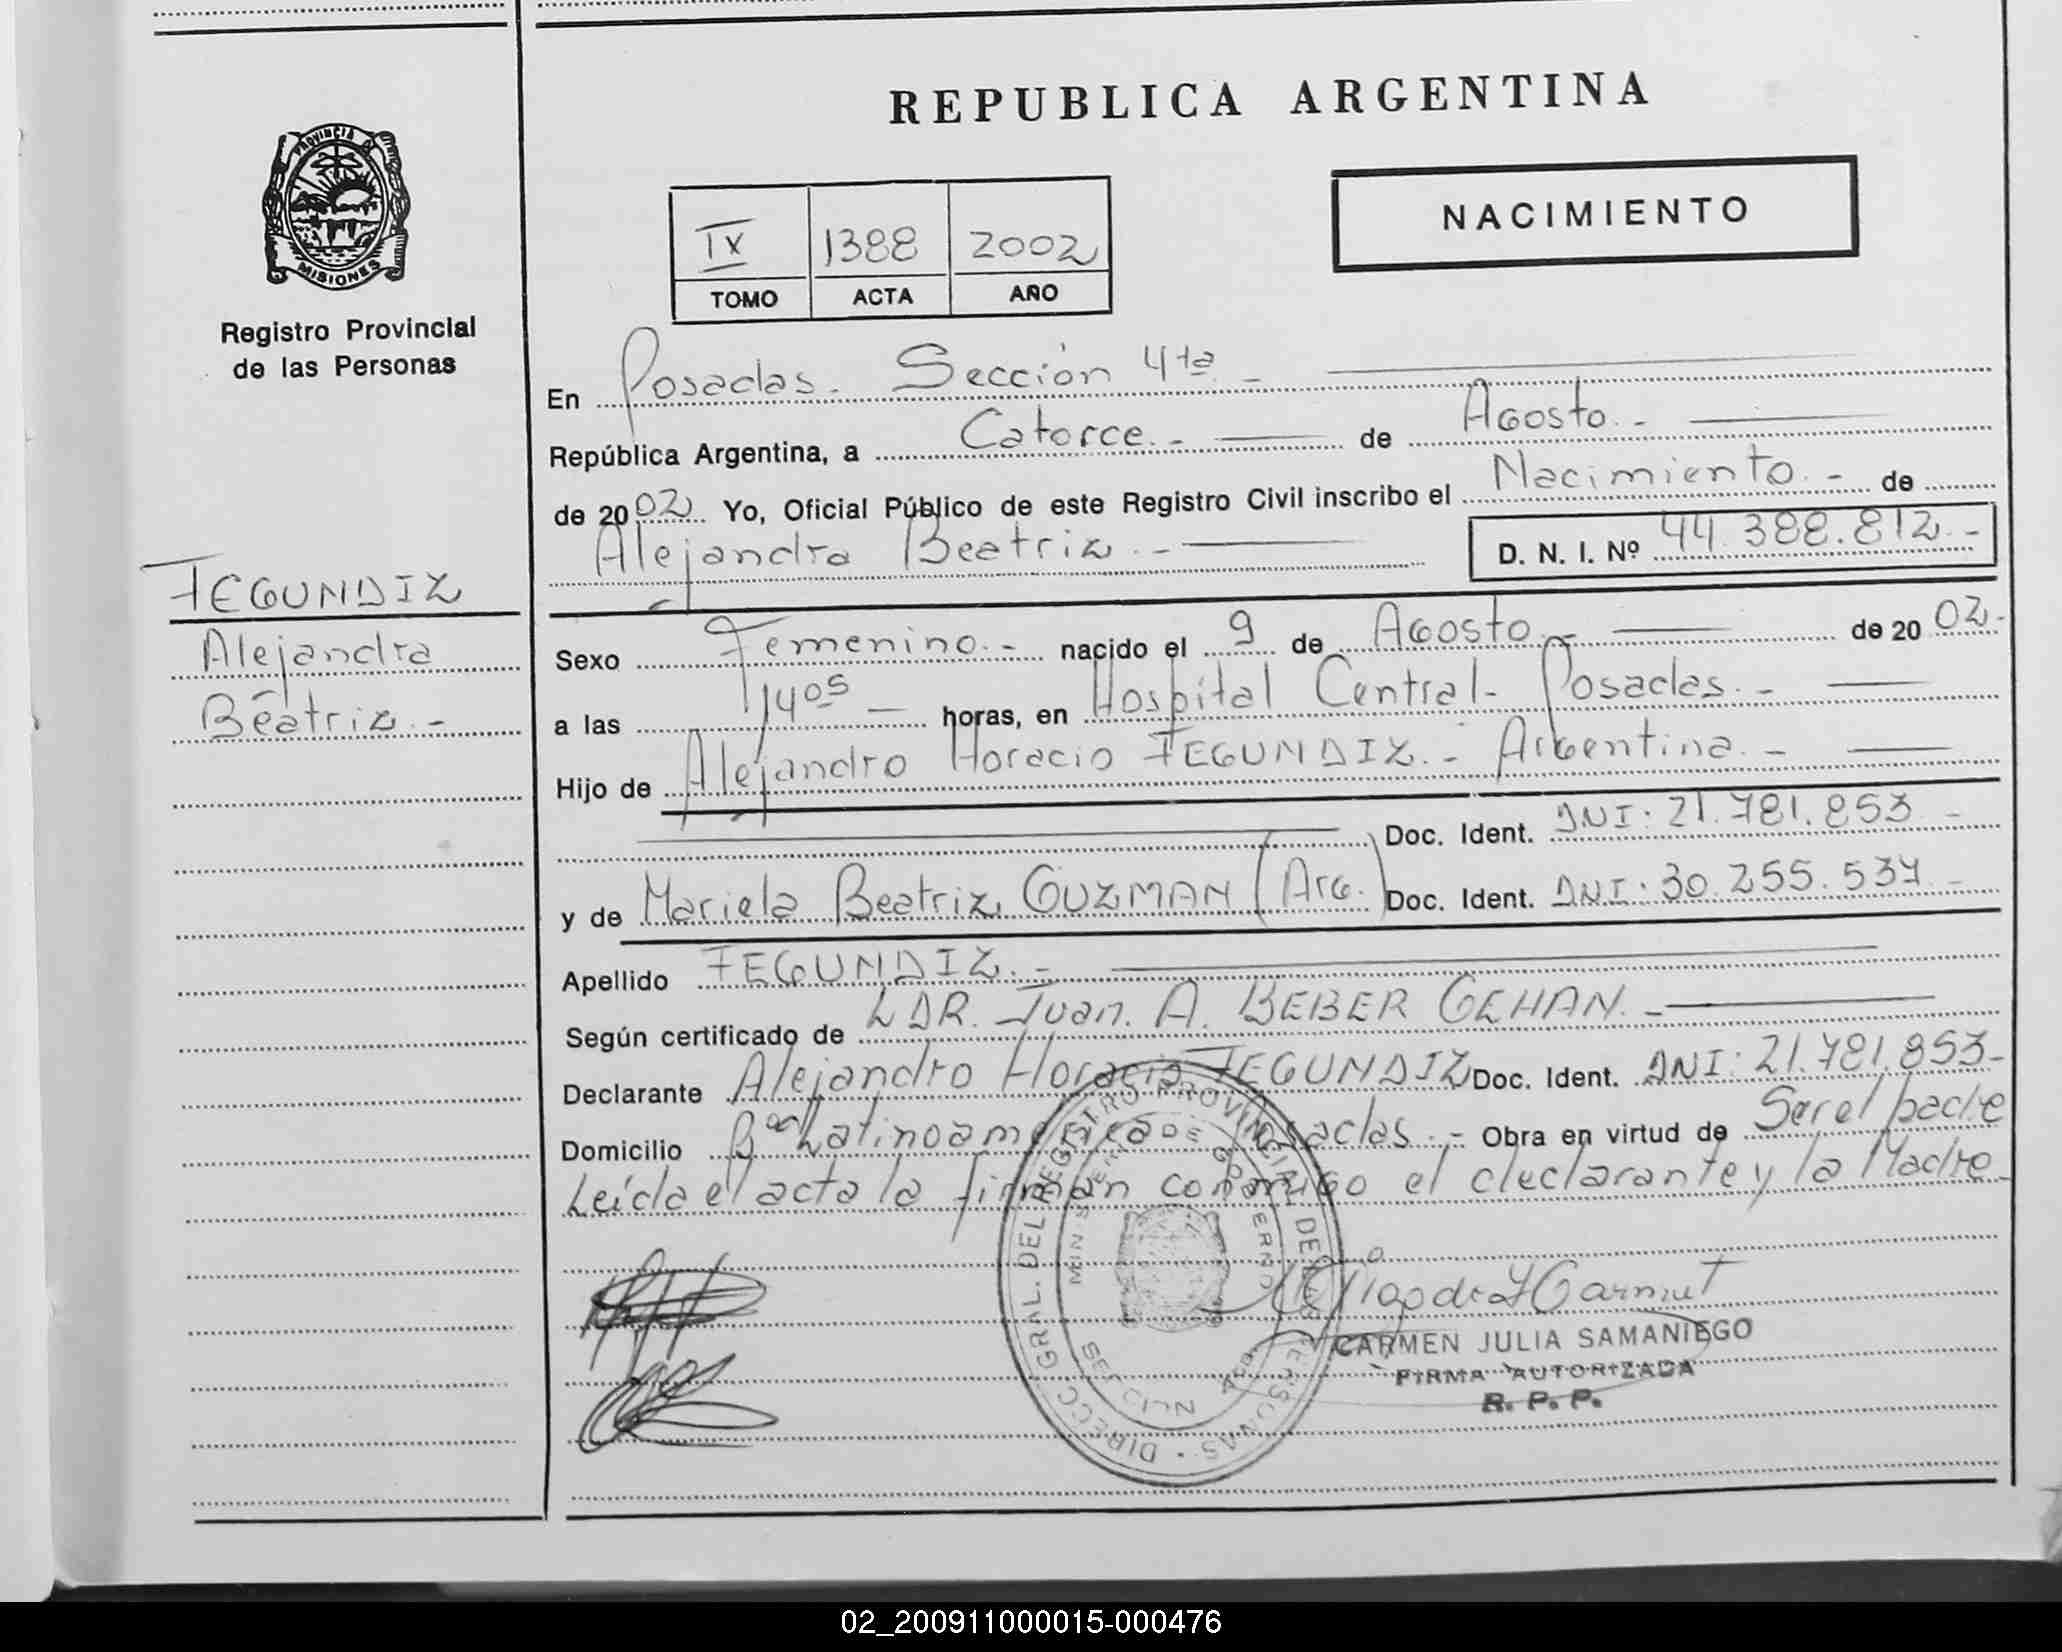 REPUBLICA ARGENTINA
PROVINCIA DE
MISIONES
Registro Provincial
de las Personas
NACIMIENTO
IX 1388 2002
TOMO ACTA AÑO
En Posadas. Sección 4ta. -
República Argentina, a Catorce. - de Agosto. -
de 2002 Yo, Oficial Público de este Registro Civil inscribo el Nacimiento. - de
Alejandra Beatriz. - D. N. I. Nº 44.388.812. -
FEGUNDIZ
Alejandra
Beatriz. -
Sexo Femenino. - nacido el 9 de Agosto. - de 2002. -
a las 1405 - horas, en Hospital Central - Posadas. -
Hijo de Alejandro Horacio FEGUNDIZ. - Argentina. -
Doc. Ident. DNI: 21.781.853. -
y de Mariela Beatriz GUZMAN (Arg.) Doc. Ident. DNI: 30.255.537 -
Apellido FEGUNDIZ. -
Según certificado de LDR. Juan. A. BEBER GEHAN. -
Declarante Alejandro Horacio FEGUNDIZ Doc. Ident. DNI: 21.781.853 -
Domicilio Bº Latinoamérica Posadas. - Obra en virtud de Ser el padre
Leída el acta la firman conmigo el declarante y la Madre -
DIRECC. GRAL. DEL REGISTRO PROVINCIAL DE LAS PERSONAS
MINISTERIO DE GOBIERNO
CARMEN JULIA SAMANIEGO
FIRMA AUTORIZADA
R. P. P.
02_200911000015-000476